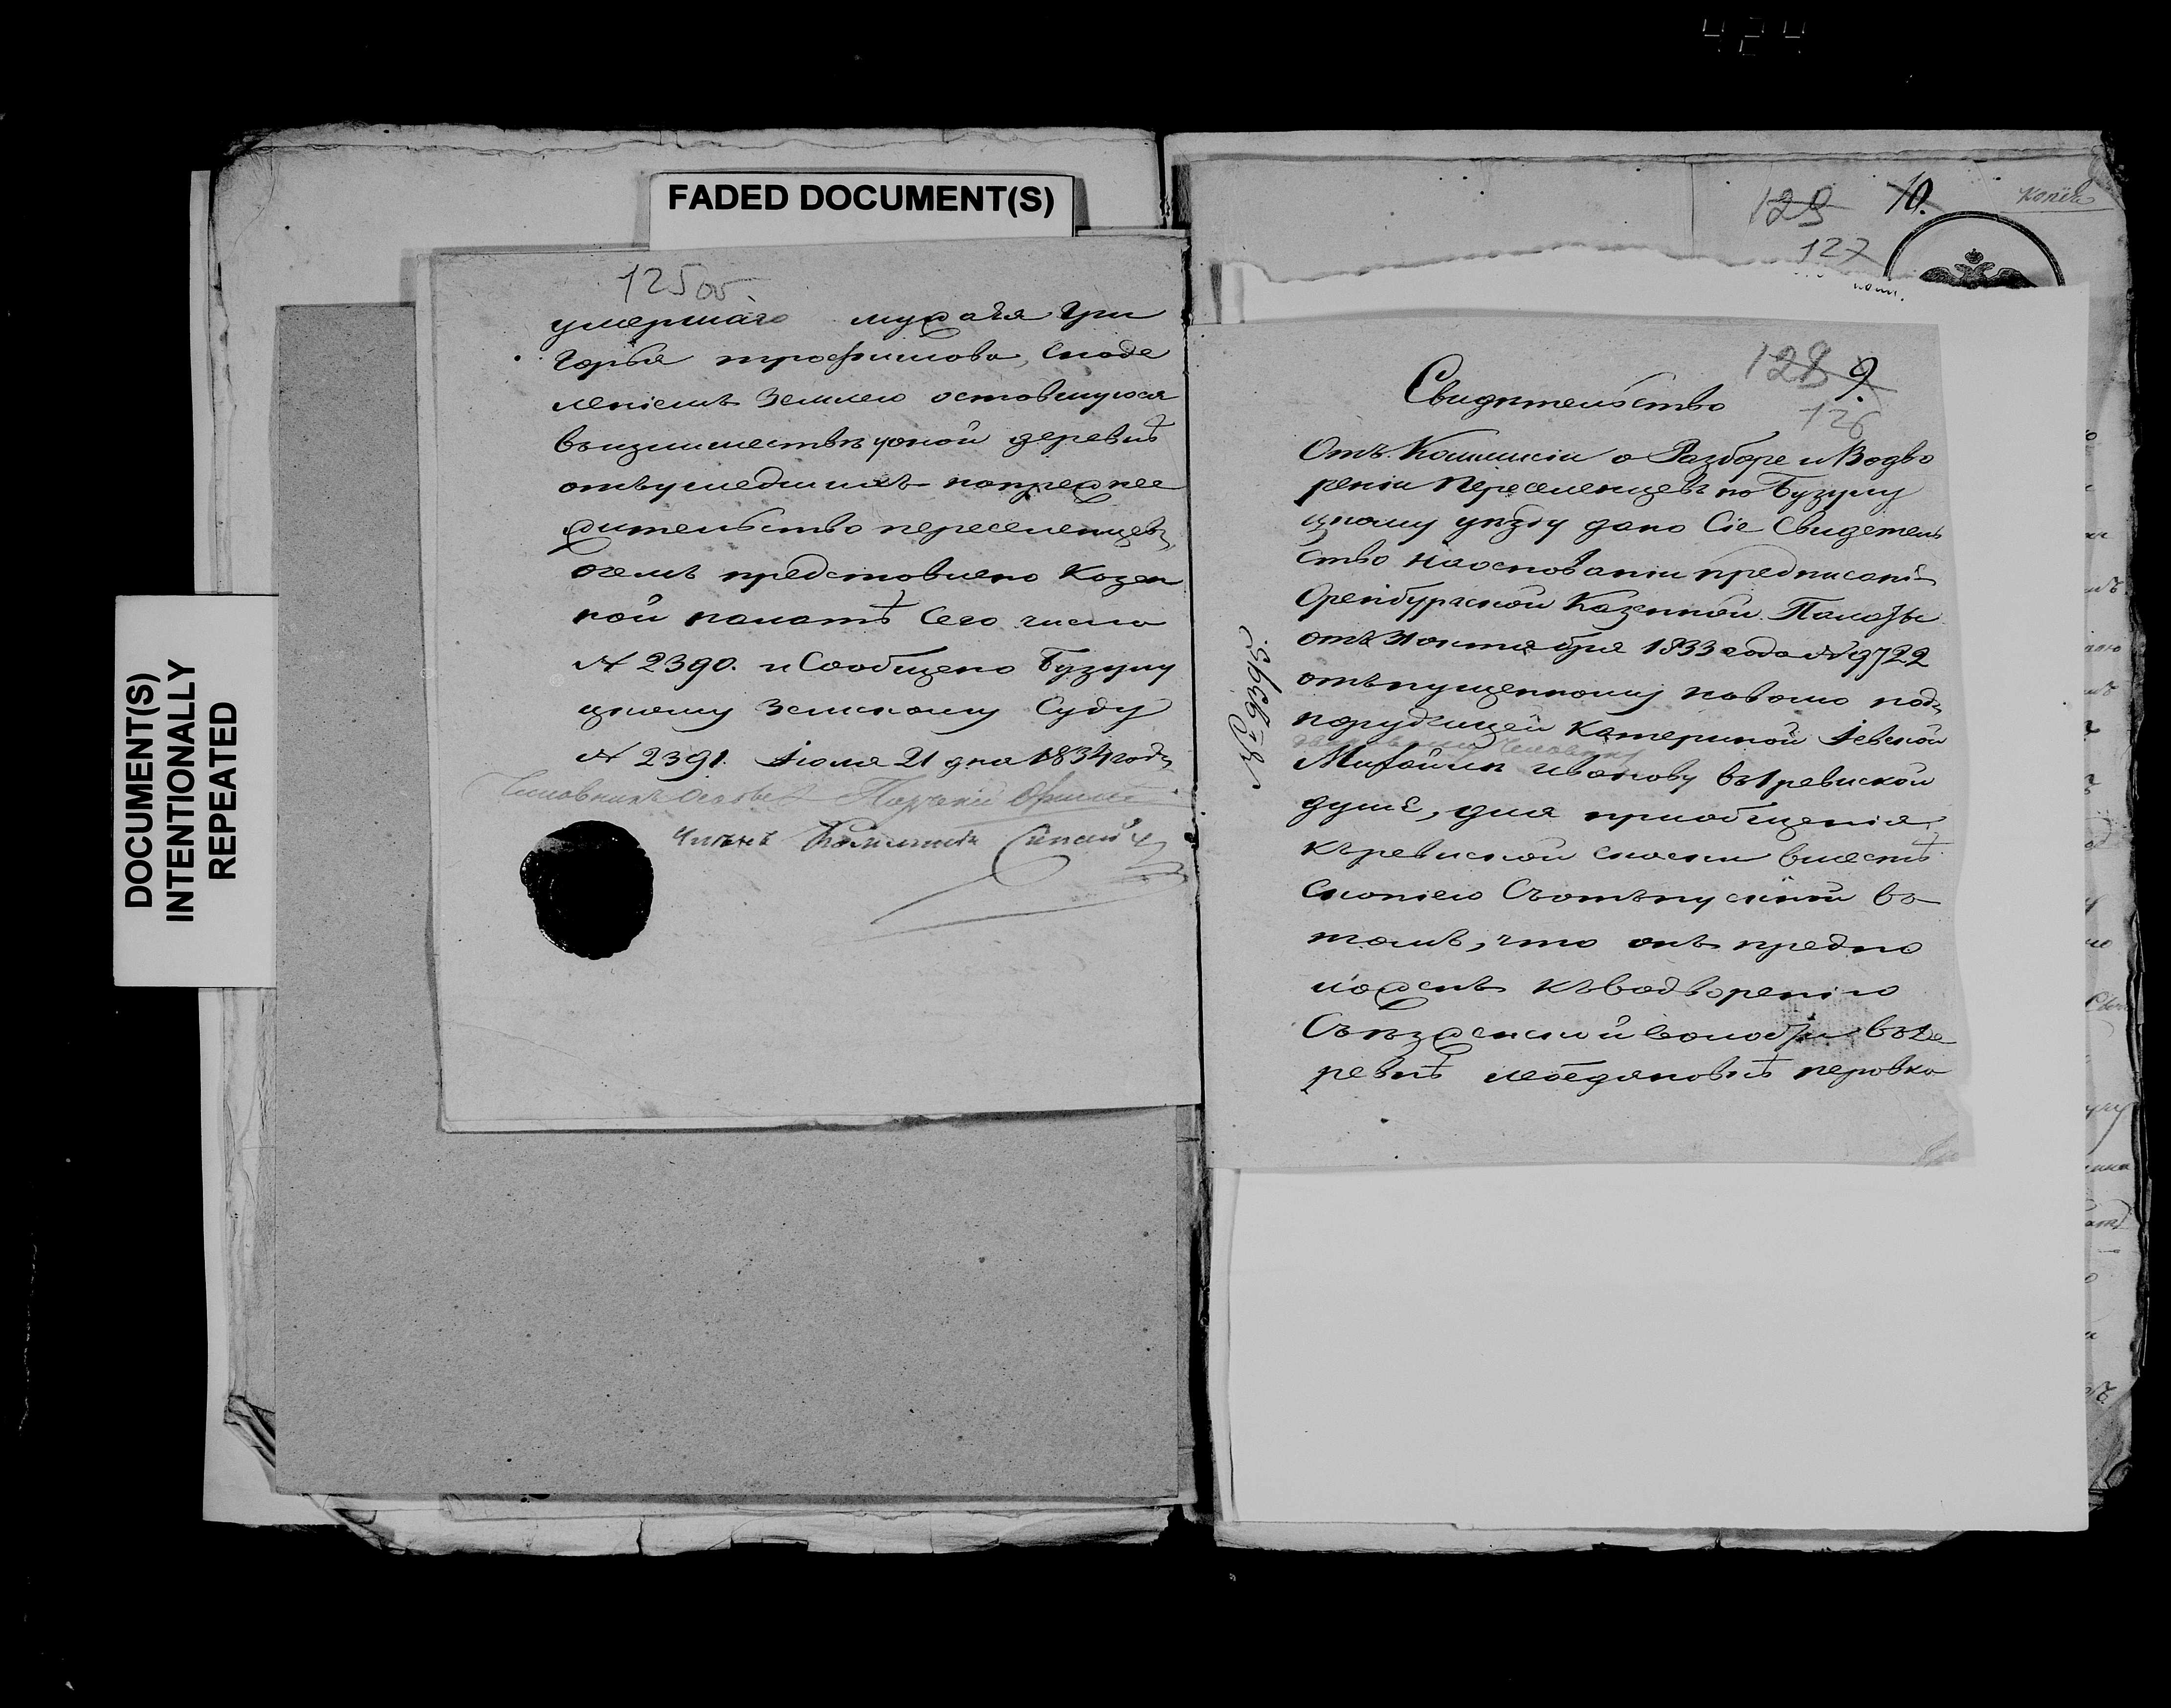 424
FADED DOCUMENT(S)
DOCUMENT(S)
INTENTIONALLY
REPEATED
125об.
умершаго мужа Гри
горья трофимова, Снаде
леніемъ землею оставшуюся
въизлишествѣ уоной деревнѣ
отъушедшихъ напрежнее
жительство переселенцевъ,
очемъ представлено Козен
ной палатѣ Сего числа
№ 2390. и Сообщено Бузулу
цкому Земскому Суду
№ 2391. Іюля 21 дня 1834 года
Членъ Комисіи
129 10. Копія
127
128 9.
126
Свидѣтельство
Отъ Коммисіи о Разборе и Водво
реніи Переселенцевъ по Бузулу
цкому уѣзду дано Сіе Свидетель
ство наоснованіи предписанія
Оренбургской Казенной Палаты
отъ 31 октября 1833 года № 9722
отъпущенному наволю подъ
поручицей Катериной
Михайле Иванову въ 1 ревиской
душе, для приобщенія
къревиской скаски вместѣ
Скопіею Съотъпускной въ
томъ, что онъ предпо
ложенъ къводворенію
Съезженской волости въде
ревнѣ
№ 2395.